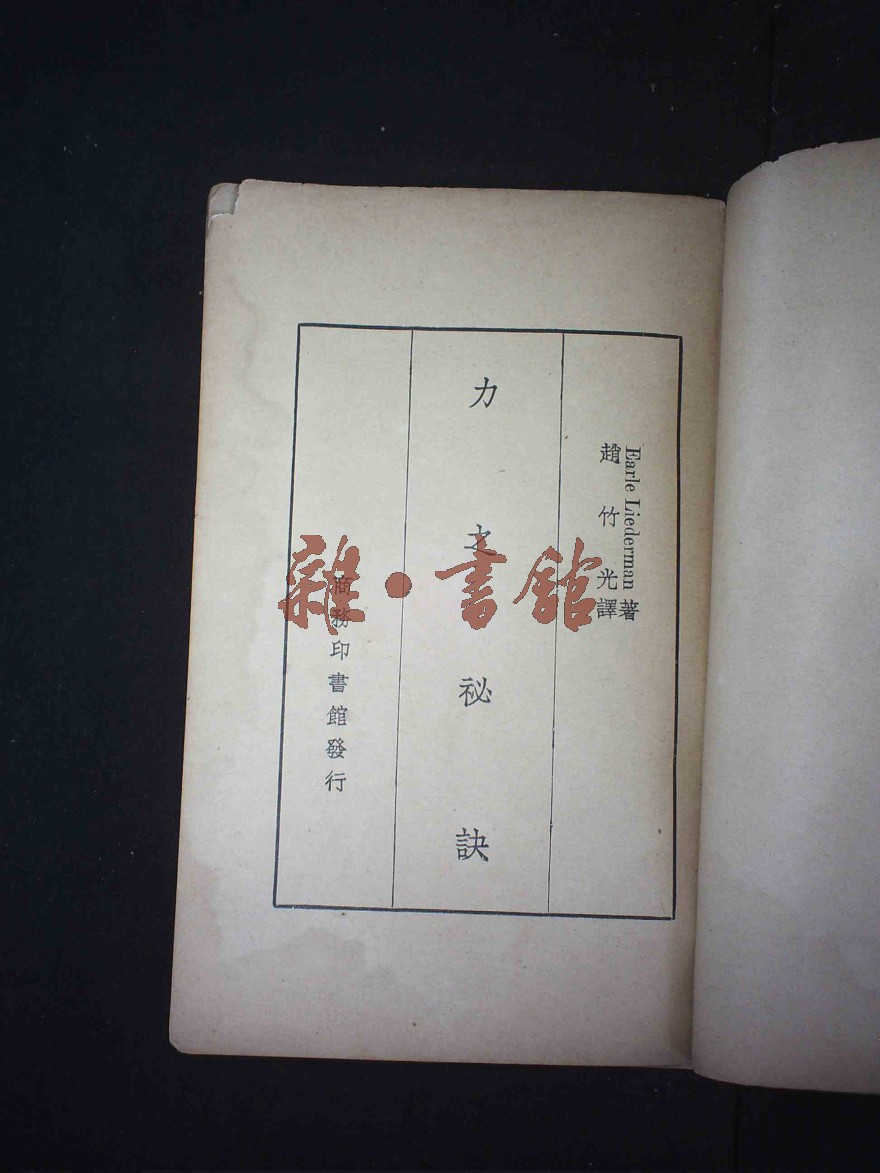 Earle Liederman 著
趙竹光譯
力之祕訣
商務印書館發行
雜·書館